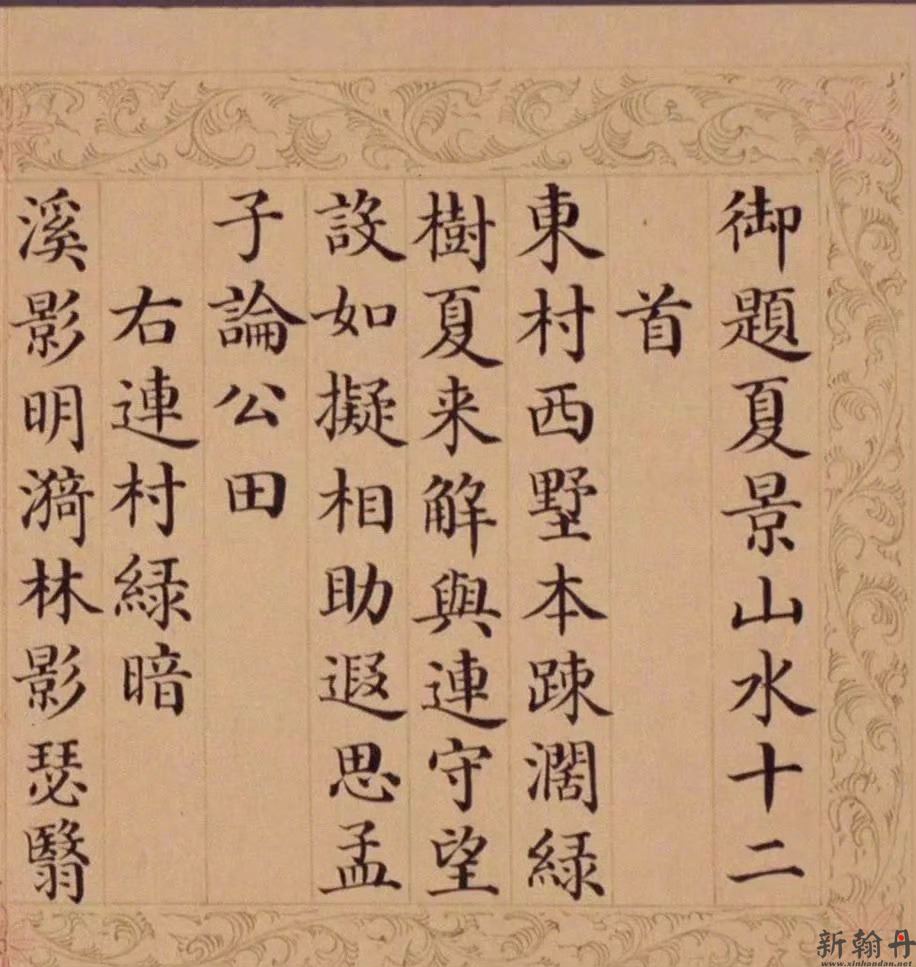 御題夏景山水十二
首
東村西墅本踈濶緑
樹夏来解與連守望
設如擬相助遐思孟
子論公田
右連村緑暗
溪影明漪林影瑟翳
新翰丹
www.xinhandan.net